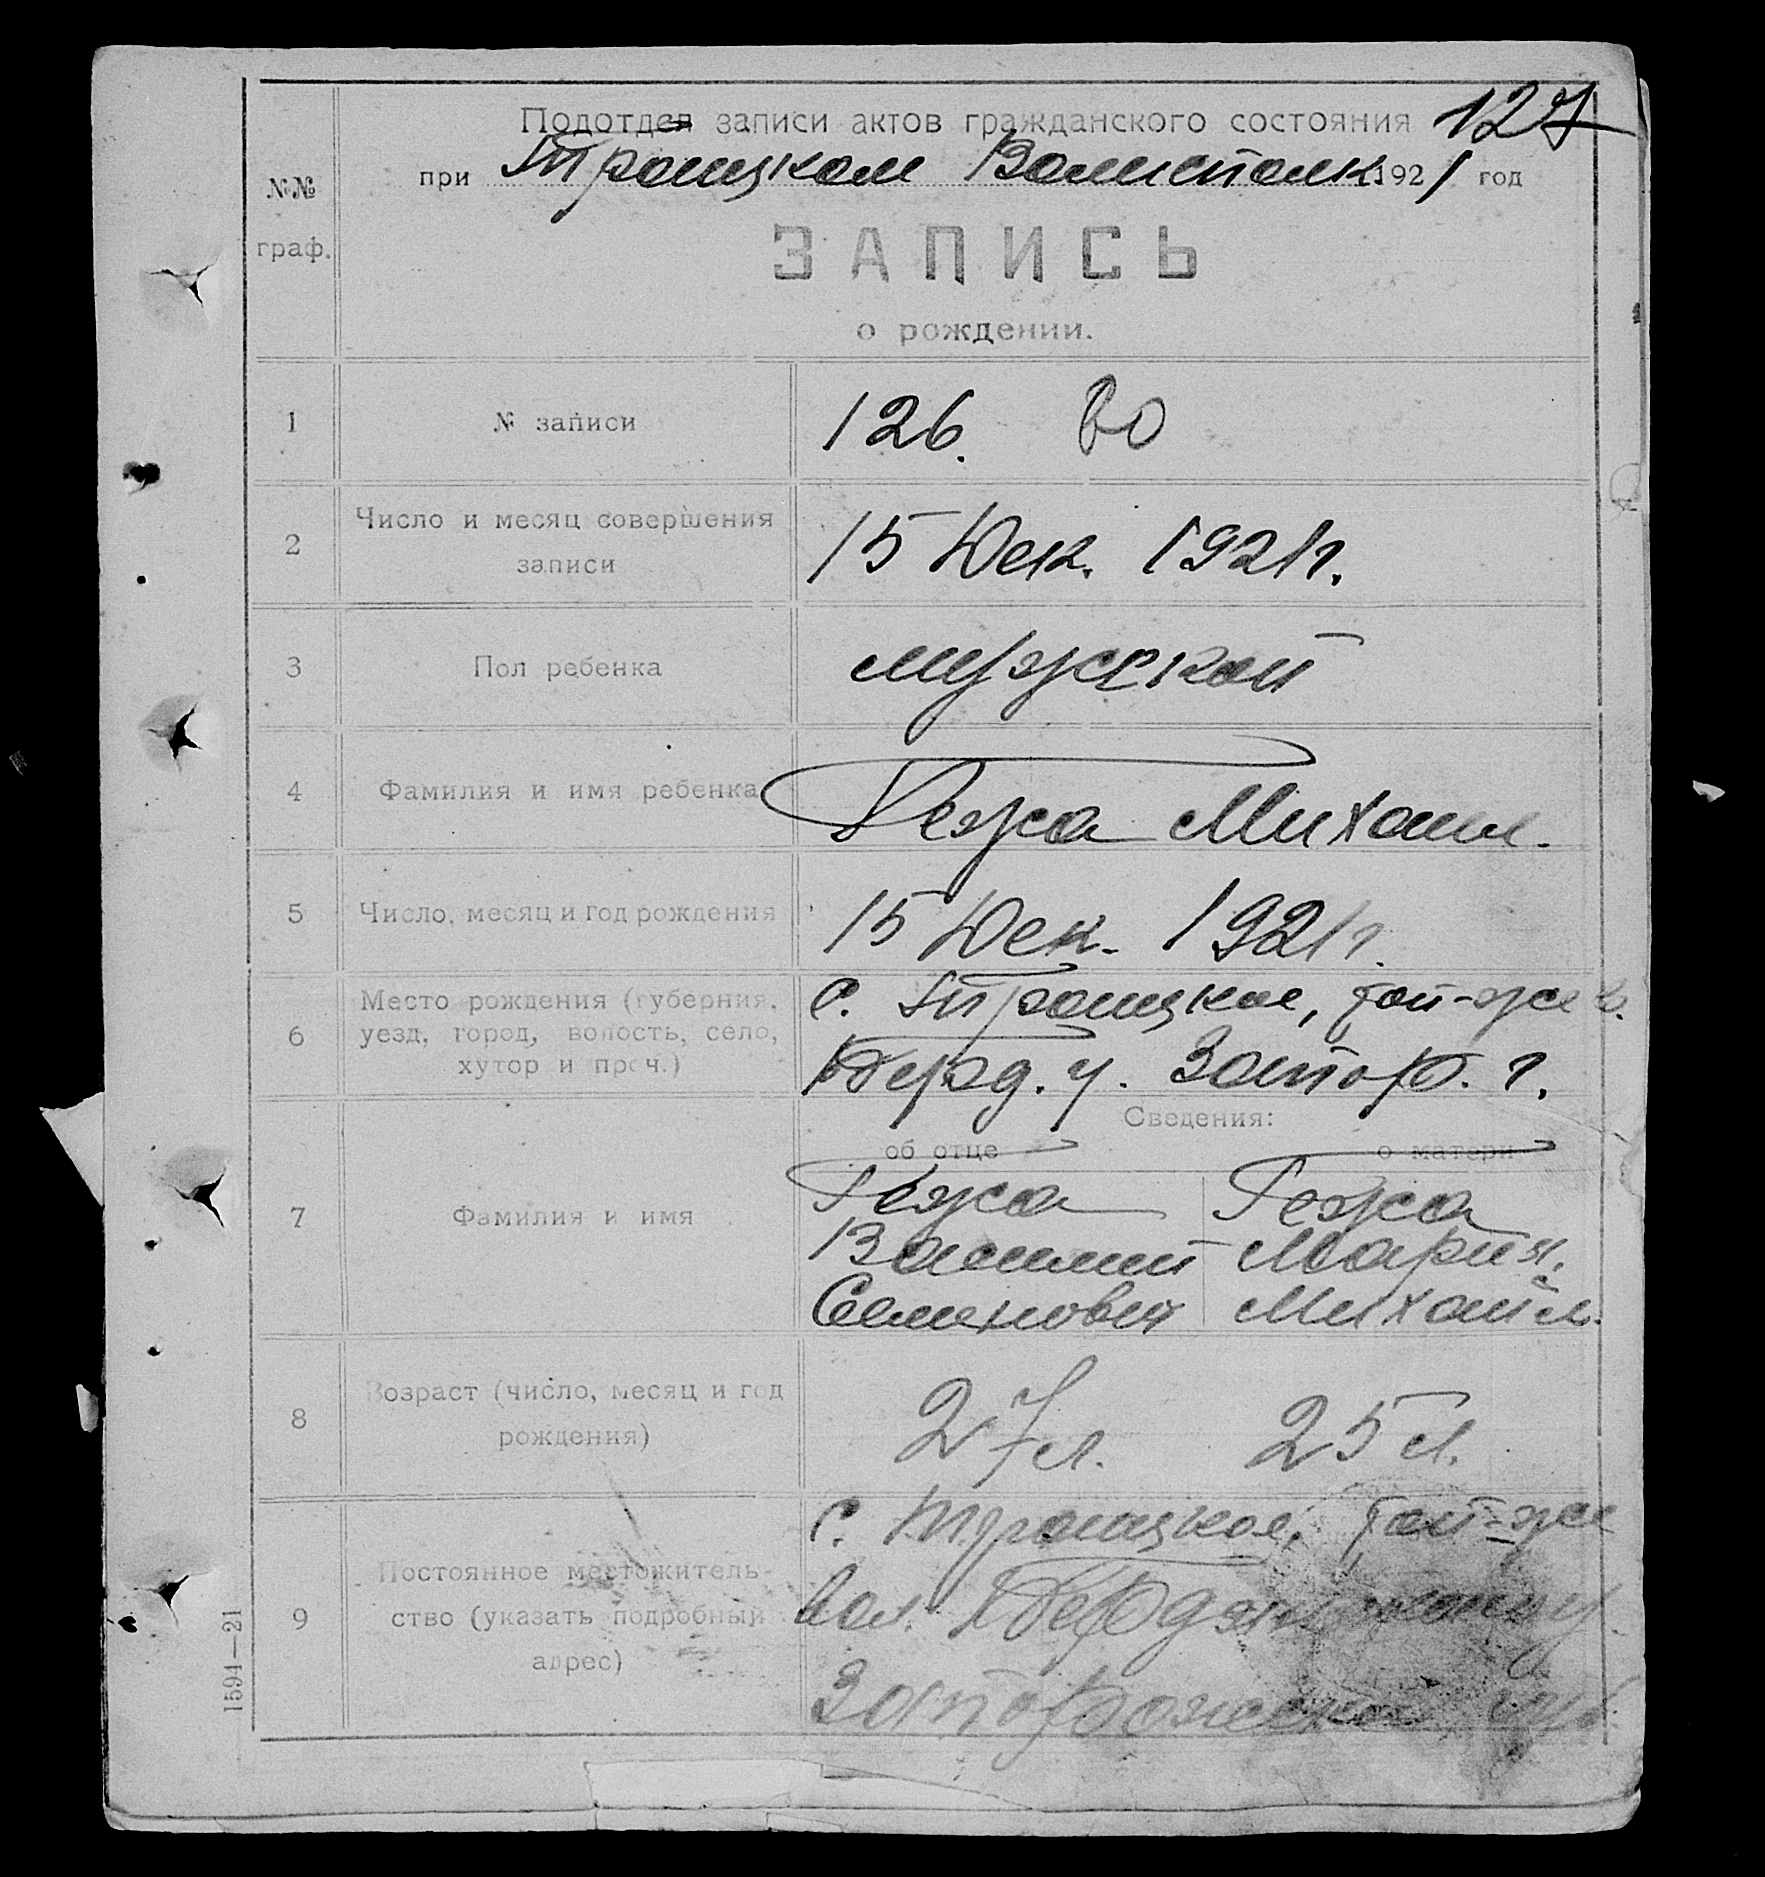 127
Подотдел записи актов гражданского состояния
при Троицком Волисполк. 1921 год
№№
граф.
ЗАПИСЬ
о рождении.
1 № записи 126.
2 Число и месяц совершения
записи 15 Дек. 1921 г.
3 Пол ребенка мужской
4 Фамилия и имя ребенка Гежа Михаил.
5 Число, месяц и год рождения 15 Дек. 1921 г.
6 Место рождения (губерния,
уезд, город, волость, село,
хутор и проч.)
с. Троицкое, той-же в.
Берд. у. Запор. г.
Сведения:
об отце о матери
7 Фамилия и имя
Гежа Гежа
Василий Мария.
Семенович Михайл.
8 Возраст (число, месяц и год
рождения) 27 л. 25 л.
9 Постоянное местожитель-
ство (указать подробный
адрес)
с. Троицкое, той-же
вол. у.
Запорожской губ.
1594—21